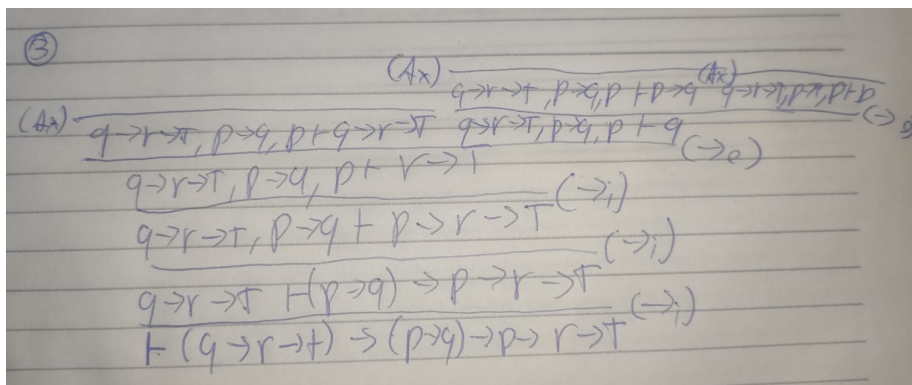 ③
(Ax)
q→r→t, p→q, p ⊢ p→q (Ax) q→r→t, p→q, p ⊢ p
(Ax) (→e)
q→r→t, p→q, p ⊢ q→r→t q→r→t, p→q, p ⊢ q
(→e)
q→r→t, p→q, p ⊢ r→t
(→i)
q→r→t, p→q ⊢ p→r→t
(→i)
q→r→t ⊢ (p→q)→p→r→t
(→i)
⊢ (q→r→t)→(p→q)→p→r→t